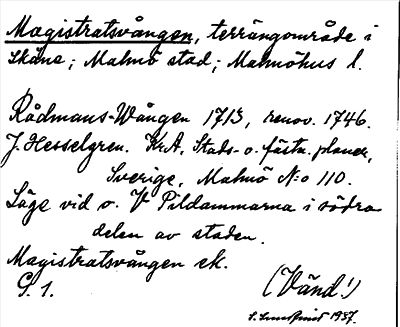 Magistratsvången, terrängområde i
Skåne; Malmö stad; Malmöhus l.
Rådmans-Wången 1713, renov. 1746.
J. Hesselgren. KrA, Stads- o. fästn. planer,
Sverige, Malmö N:o 110.
Läge vid o. V Pildammarna i södra
delen av staden.
Magistratsvången ek.
G. 1.
(Vänd!)
S. Lundqvist 1937.